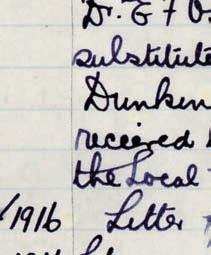 Dr. E F
substitute
Dunken
received
the Local
/1916 Letter